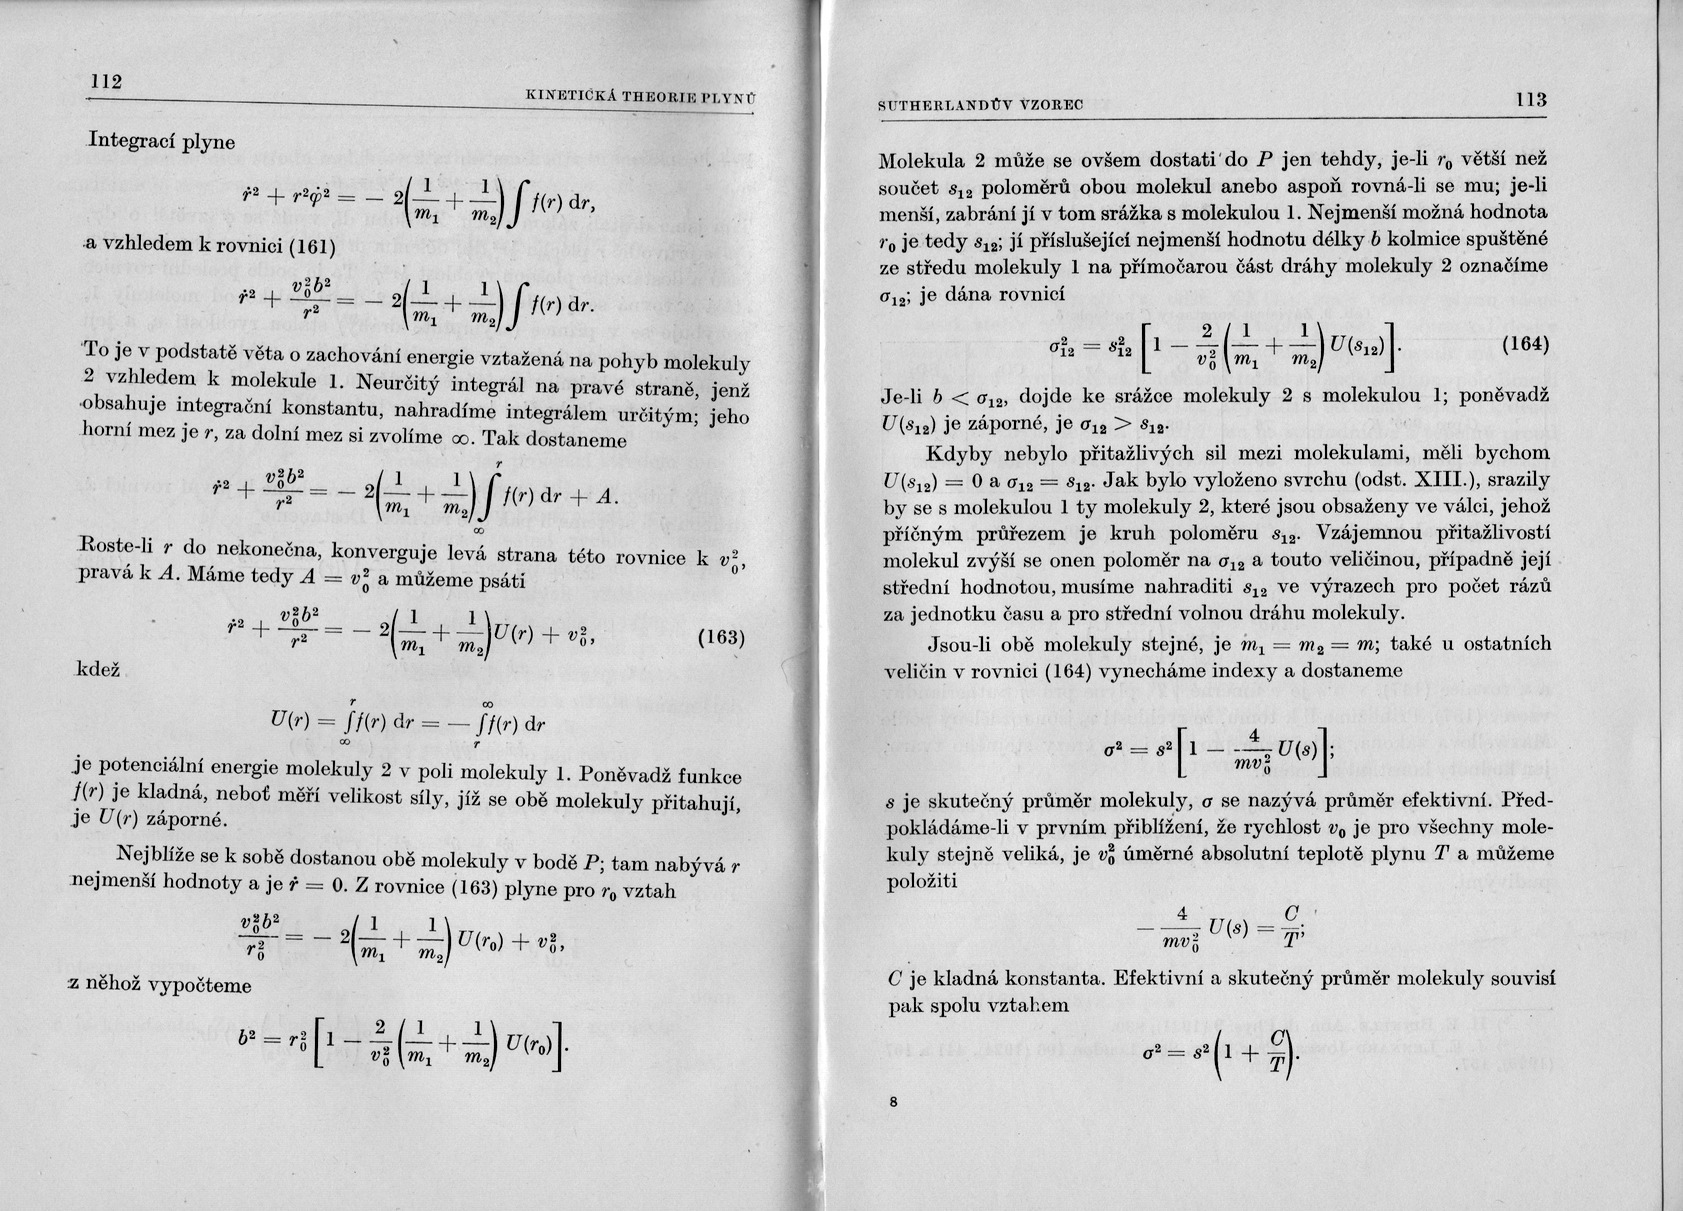 112
KINETICKÁ THEORIE PLYNŮ
Integrací plyne
ṙ² + r²φ̇² = − 2(1/m₁ + 1/m₂)∫ f(r) dr,
a vzhledem k rovnici (161)
ṙ² + v₀²b²/r² = − 2(1/m₁ + 1/m₂)∫ f(r) dr.
To je v podstatě věta o zachování energie vztažená na pohyb molekuly
2 vzhledem k molekule 1. Neurčitý integrál na pravé straně, jenž
obsahuje integrační konstantu, nahradíme integrálem určitým; jeho
horní mez je r, za dolní mez si zvolíme ∞. Tak dostaneme
ṙ² + v₀²b²/r² = − 2(1/m₁ + 1/m₂)∫_∞^r f(r) dr + A.
Roste-li r do nekonečna, konverguje levá strana této rovnice k v₀²,
pravá k A. Máme tedy A = v₀² a můžeme psáti
ṙ² + v₀²b²/r² = − 2(1/m₁ + 1/m₂)U(r) + v₀², (163)
kdež
U(r) = ∫_∞^r f(r) dr = − ∫_r^∞ f(r) dr
je potenciální energie molekuly 2 v poli molekuly 1. Poněvadž funkce
f(r) je kladná, neboť měří velikost síly, jíž se obě molekuly přitahují,
je U(r) záporné.
Nejblíže se k sobě dostanou obě molekuly v bodě P; tam nabývá r
nejmenší hodnoty a je ṙ = 0. Z rovnice (163) plyne pro r₀ vztah
v₀²b²/r₀² = − 2(1/m₁ + 1/m₂) U(r₀) + v₀²,
z něhož vypočteme
b² = r₀² [1 − 2/v₀² (1/m₁ + 1/m₂) U(r₀)].
SUTHERLANDŮV VZOREC
113
Molekula 2 může se ovšem dostati do P jen tehdy, je-li r₀ větší než
součet s₁₂ poloměrů obou molekul anebo aspoň rovná-li se mu; je-li
menší, zabrání jí v tom srážka s molekulou 1. Nejmenší možná hodnota
r₀ je tedy s₁₂; jí příslušející nejmenší hodnotu délky b kolmice spuštěné
ze středu molekuly 1 na přímočarou část dráhy molekuly 2 označíme
σ₁₂; je dána rovnicí
σ₁₂² = s₁₂² [1 − 2/v₀² (1/m₁ + 1/m₂) U(s₁₂)]. (164)
Je-li b < σ₁₂, dojde ke srážce molekuly 2 s molekulou 1; poněvadž
U(s₁₂) je záporné, je σ₁₂ > s₁₂.
Kdyby nebylo přitažlivých sil mezi molekulami, měli bychom
U(s₁₂) = 0 a σ₁₂ = s₁₂. Jak bylo vyloženo svrchu (odst. XIII.), srazily
by se s molekulou 1 ty molekuly 2, které jsou obsaženy ve válci, jehož
příčným průřezem je kruh poloměru s₁₂. Vzájemnou přitažlivostí
molekul zvýší se onen poloměr na σ₁₂ a touto veličinou, případně její
střední hodnotou, musíme nahraditi s₁₂ ve výrazech pro počet rázů
za jednotku času a pro střední volnou dráhu molekuly.
Jsou-li obě molekuly stejné, je m₁ = m₂ = m; také u ostatních
veličin v rovnici (164) vynecháme indexy a dostaneme
σ² = s² [1 − 4/mv₀² U(s)];
s je skutečný průměr molekuly, σ se nazývá průměr efektivní. Před-
pokládáme-li v prvním přiblížení, že rychlost v₀ je pro všechny mole-
kuly stejně veliká, je v₀² úměrné absolutní teplotě plynu T a můžeme
položiti
− 4/mv₀² U(s) = C/T;
C je kladná konstanta. Efektivní a skutečný průměr molekuly souvisí
pak spolu vztahem
σ² = s² (1 + C/T).
8